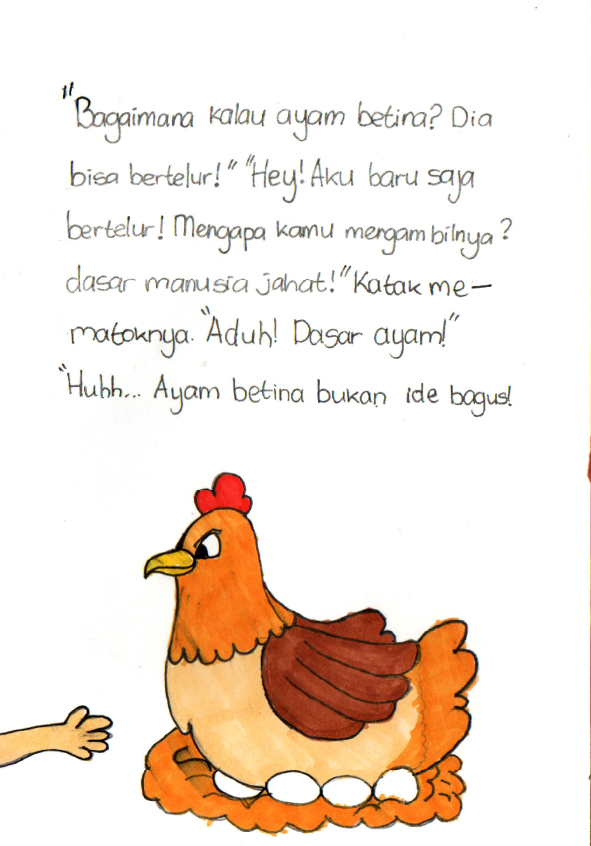 "Bagaimana kalau ayam betina? Dia
bisa bertelur!" "Hey! Aku baru saja
bertelur! Mengapa kamu mengambilnya?
dasar manusia jahat!" Katak me-
matoknya. "Aduh! Dasar ayam!"
"Huhh... Ayam betina bukan ide bagus!